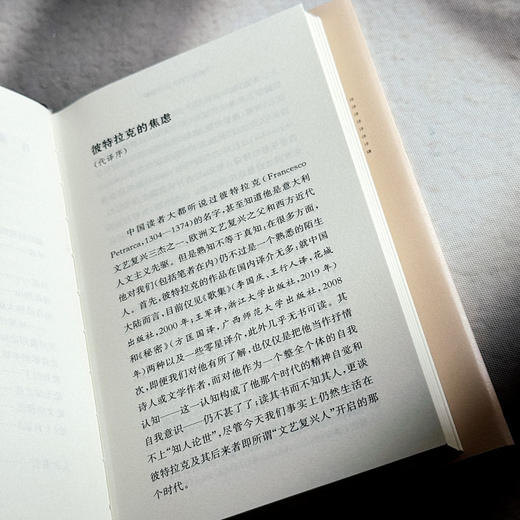 彼特拉克的焦虑
（代译序）
中国读者大都听说过彼特拉克（Francesco
Petrarca,1304—1374）的名字，甚至知道他是意大利
文艺复兴三杰之一、欧洲文艺复兴之父和西方近代
人文主义先驱。但是熟知不等于真知，在很多方面，
他对我们（包括笔者在内）仍不过是一个熟悉的陌生
人。首先，彼特拉克的作品在国内译介无多；就中国
大陆而言，目前仅见《歌集》（李国庆、王行人译，花城
出版社，2000年；王军译，浙江大学出版社，2019年）
和《秘密》（方匡国译，广西师范大学出版社，2008
年）两种以及一些零星译介，此外几乎无书可读。其
次，即便我们对他有所了解，也仅仅是把他当作抒情
诗人或文学作者，而对他作为一个整全个体的自我
认知——这一认知构成了他那个时代的精神自觉和
自我意识——仍不甚了了；读其书而不知其人，更谈
不上“知人论世”，尽管今天我们事实上仍然生活在
彼特拉克及其后来者即所谓“文艺复兴人”开启的那
个时代。